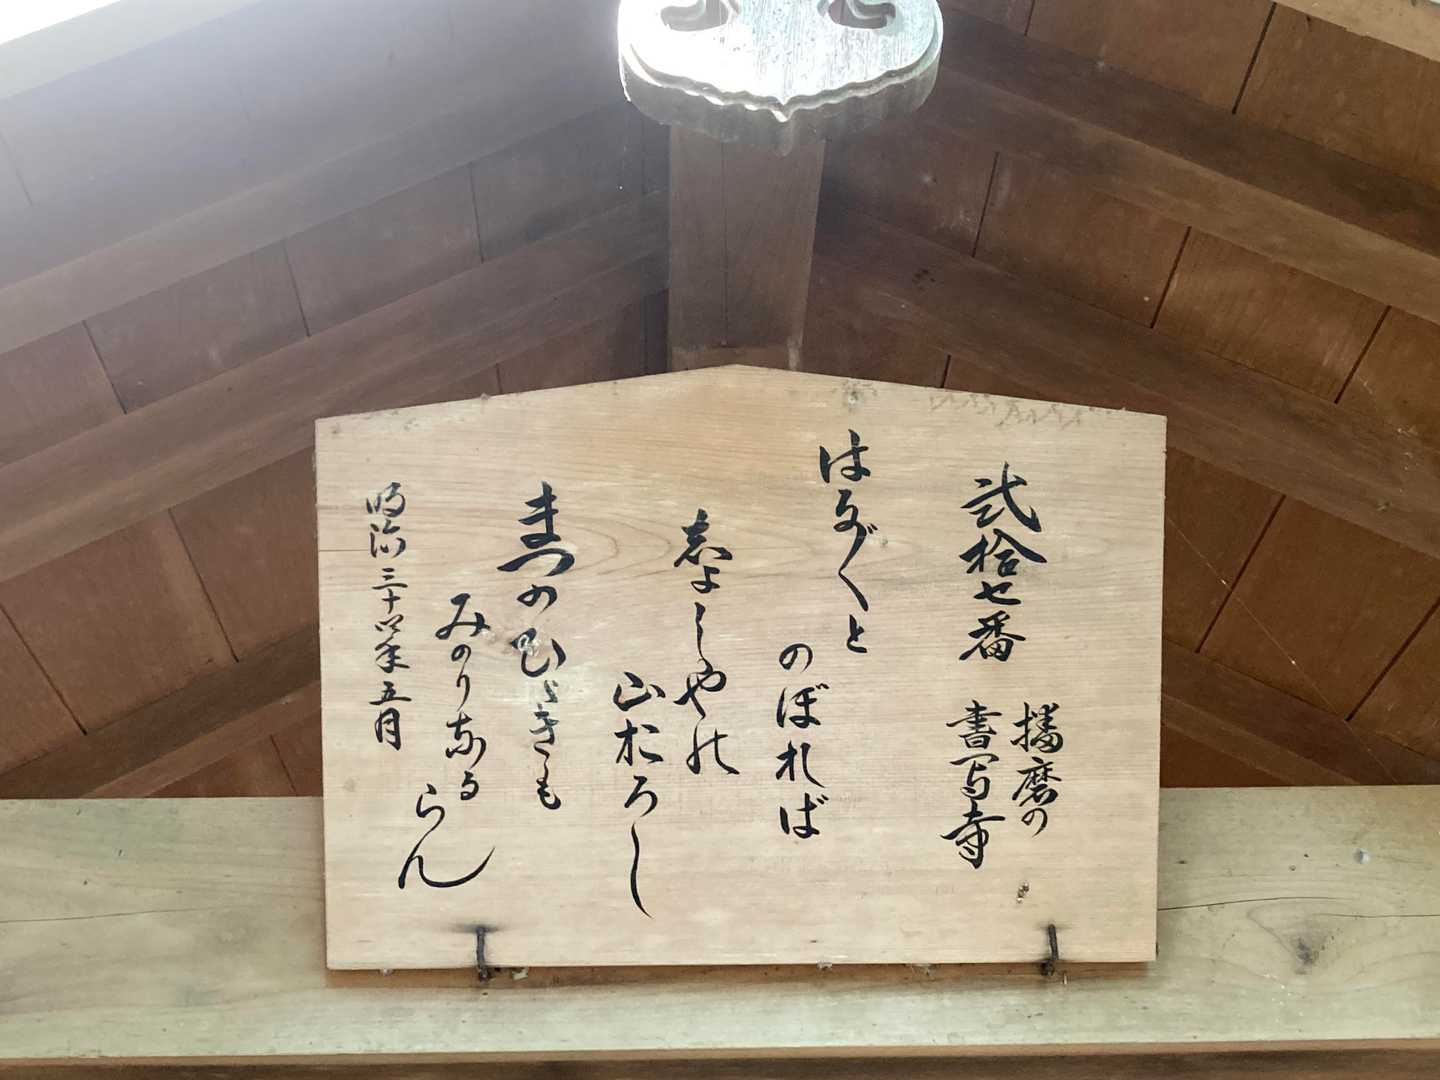 弐拾七番
播磨の
書写寺
はる〴〵と
のぼれば
志よしやの
山おろし
まつのひゞきも
みのりなる
らん
明治三十四年五月